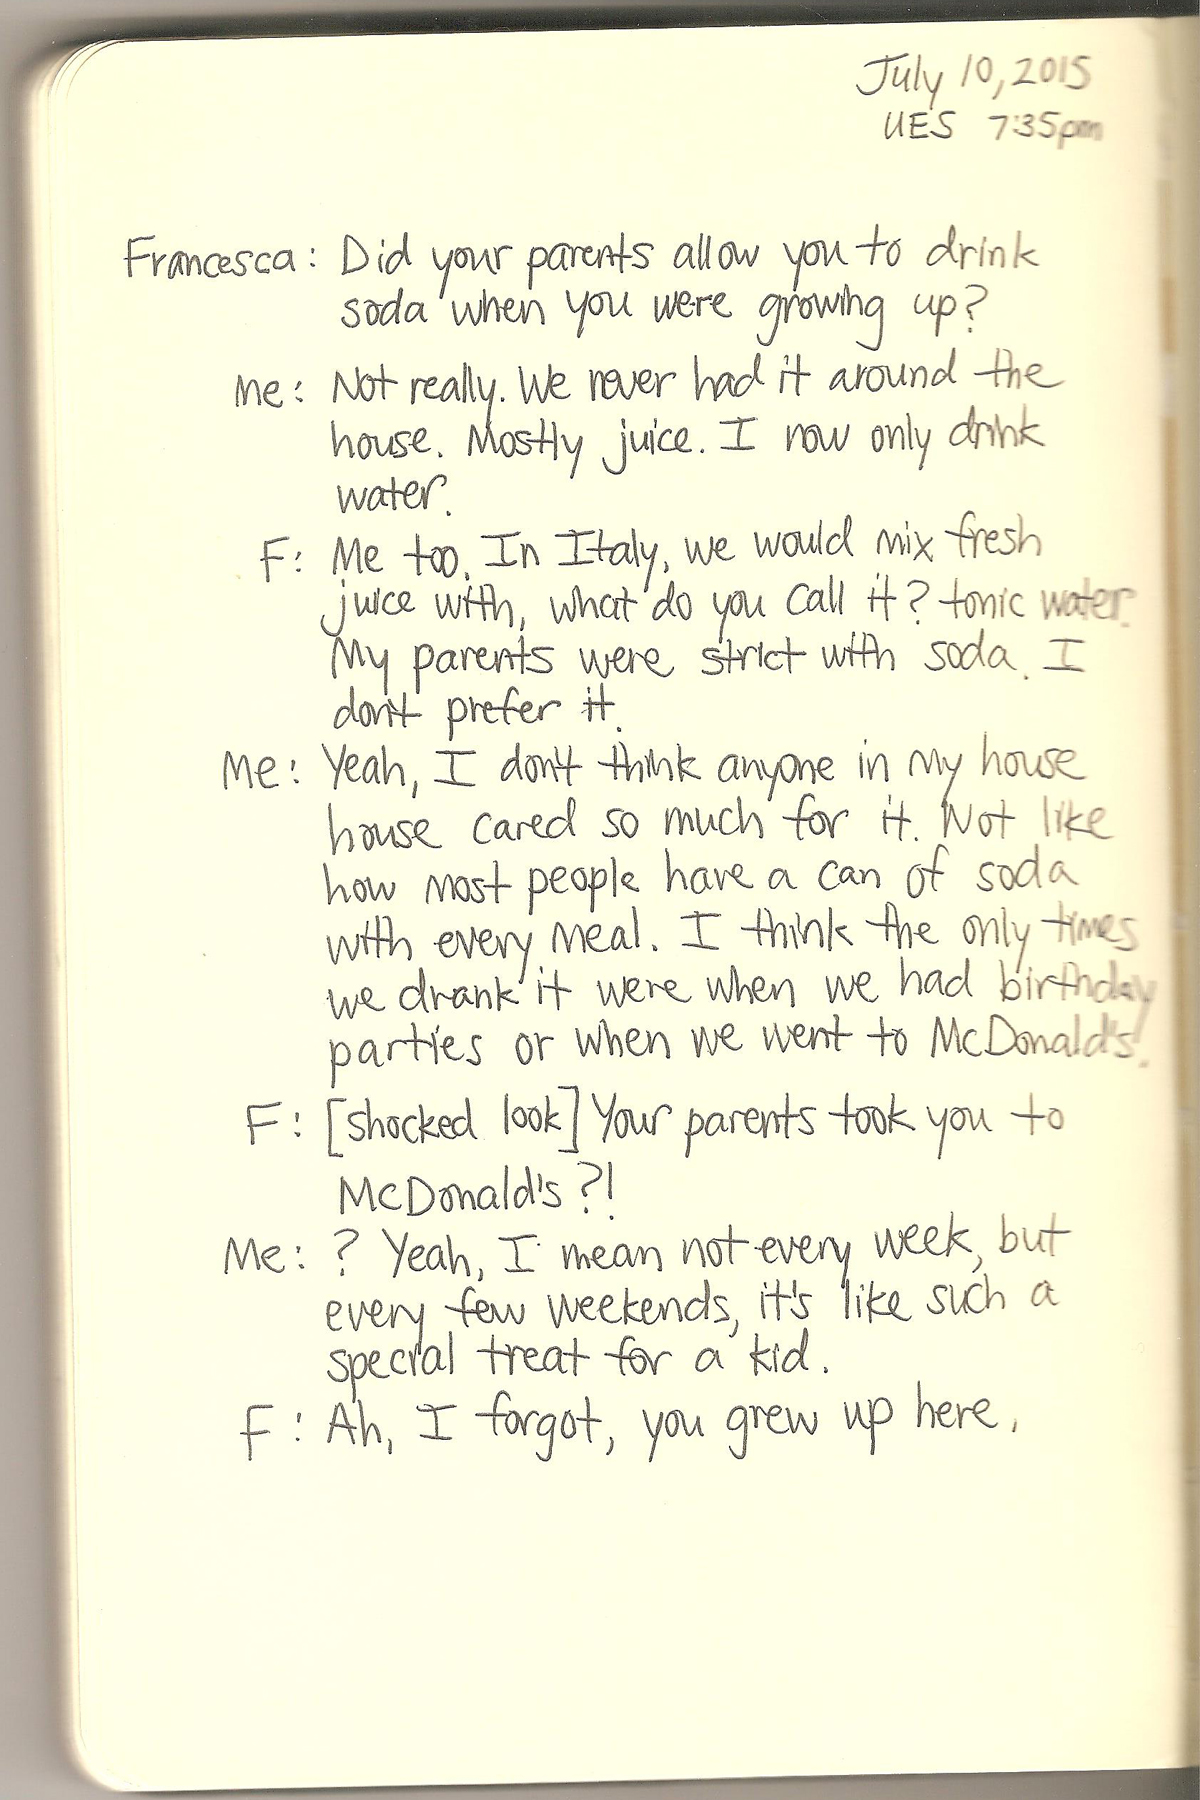 July 10, 2015
UES 7:35pm
Francesca: Did your parents allow you to drink
soda when you were growing up?
Me: Not really. We never had it around the
house. Mostly juice. I now only drink
water.
F: Me too. In Italy, we would mix fresh
juice with, what do you call it? tonic water.
My parents were strict with soda. I
don't prefer it.
Me: Yeah, I don't think anyone in my house
house cared so much for it. Not like
how most people have a can of soda
with every meal. I think the only times
we drank it were when we had birthday
parties or when we went to McDonald's.
F: [shocked look] Your parents took you to
McDonald's?!
Me: ? Yeah, I mean not every week, but
every few weekends, it's like such a
special treat for a kid.
F: Ah, I forgot, you grew up here.